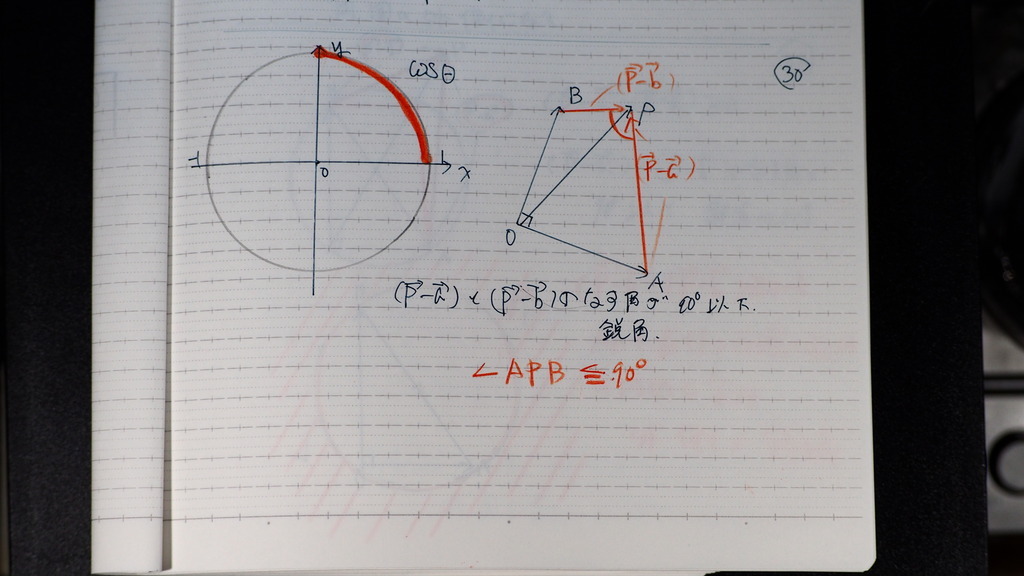 y
cosθ
-1
0
1
x
30
B
(p⃗-b⃗)
P
(p⃗-a⃗)
O
A
(p⃗-a⃗)と(p⃗-b⃗)のなす角が90°以下.
鋭角.
∠APB ≦ 90°